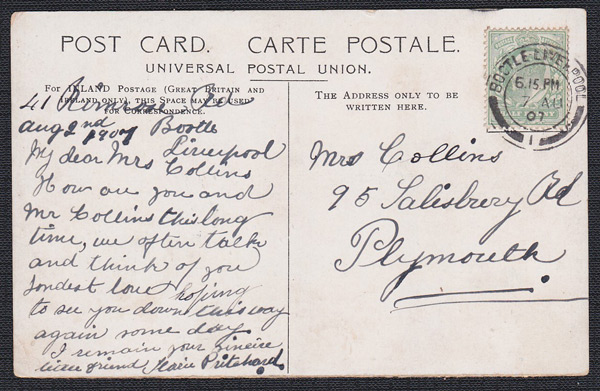 POST CARD. CARTE POSTALE.
UNIVERSAL POSTAL UNION.
FOR INLAND POSTAGE (GREAT BRITAIN AND
IRELAND ONLY), THIS SPACE MAY BE USED
FOR CORRESPONDENCE.
THE ADDRESS ONLY TO BE
WRITTEN HERE.
BOOTLE-LIVERPOOL
6.15 PM
AU
07
1
41
Aug 2nd 1907 Bootle
Liverpool
My dear Mrs Collins
How are you and
Mr Collins this long
time, we often talk
and think of you
fondest love hoping
to see you down this way
again some day
I remain your sincere
friend Pritchard.
Mrs Collins
95 Salisbury Rd
Plymouth.